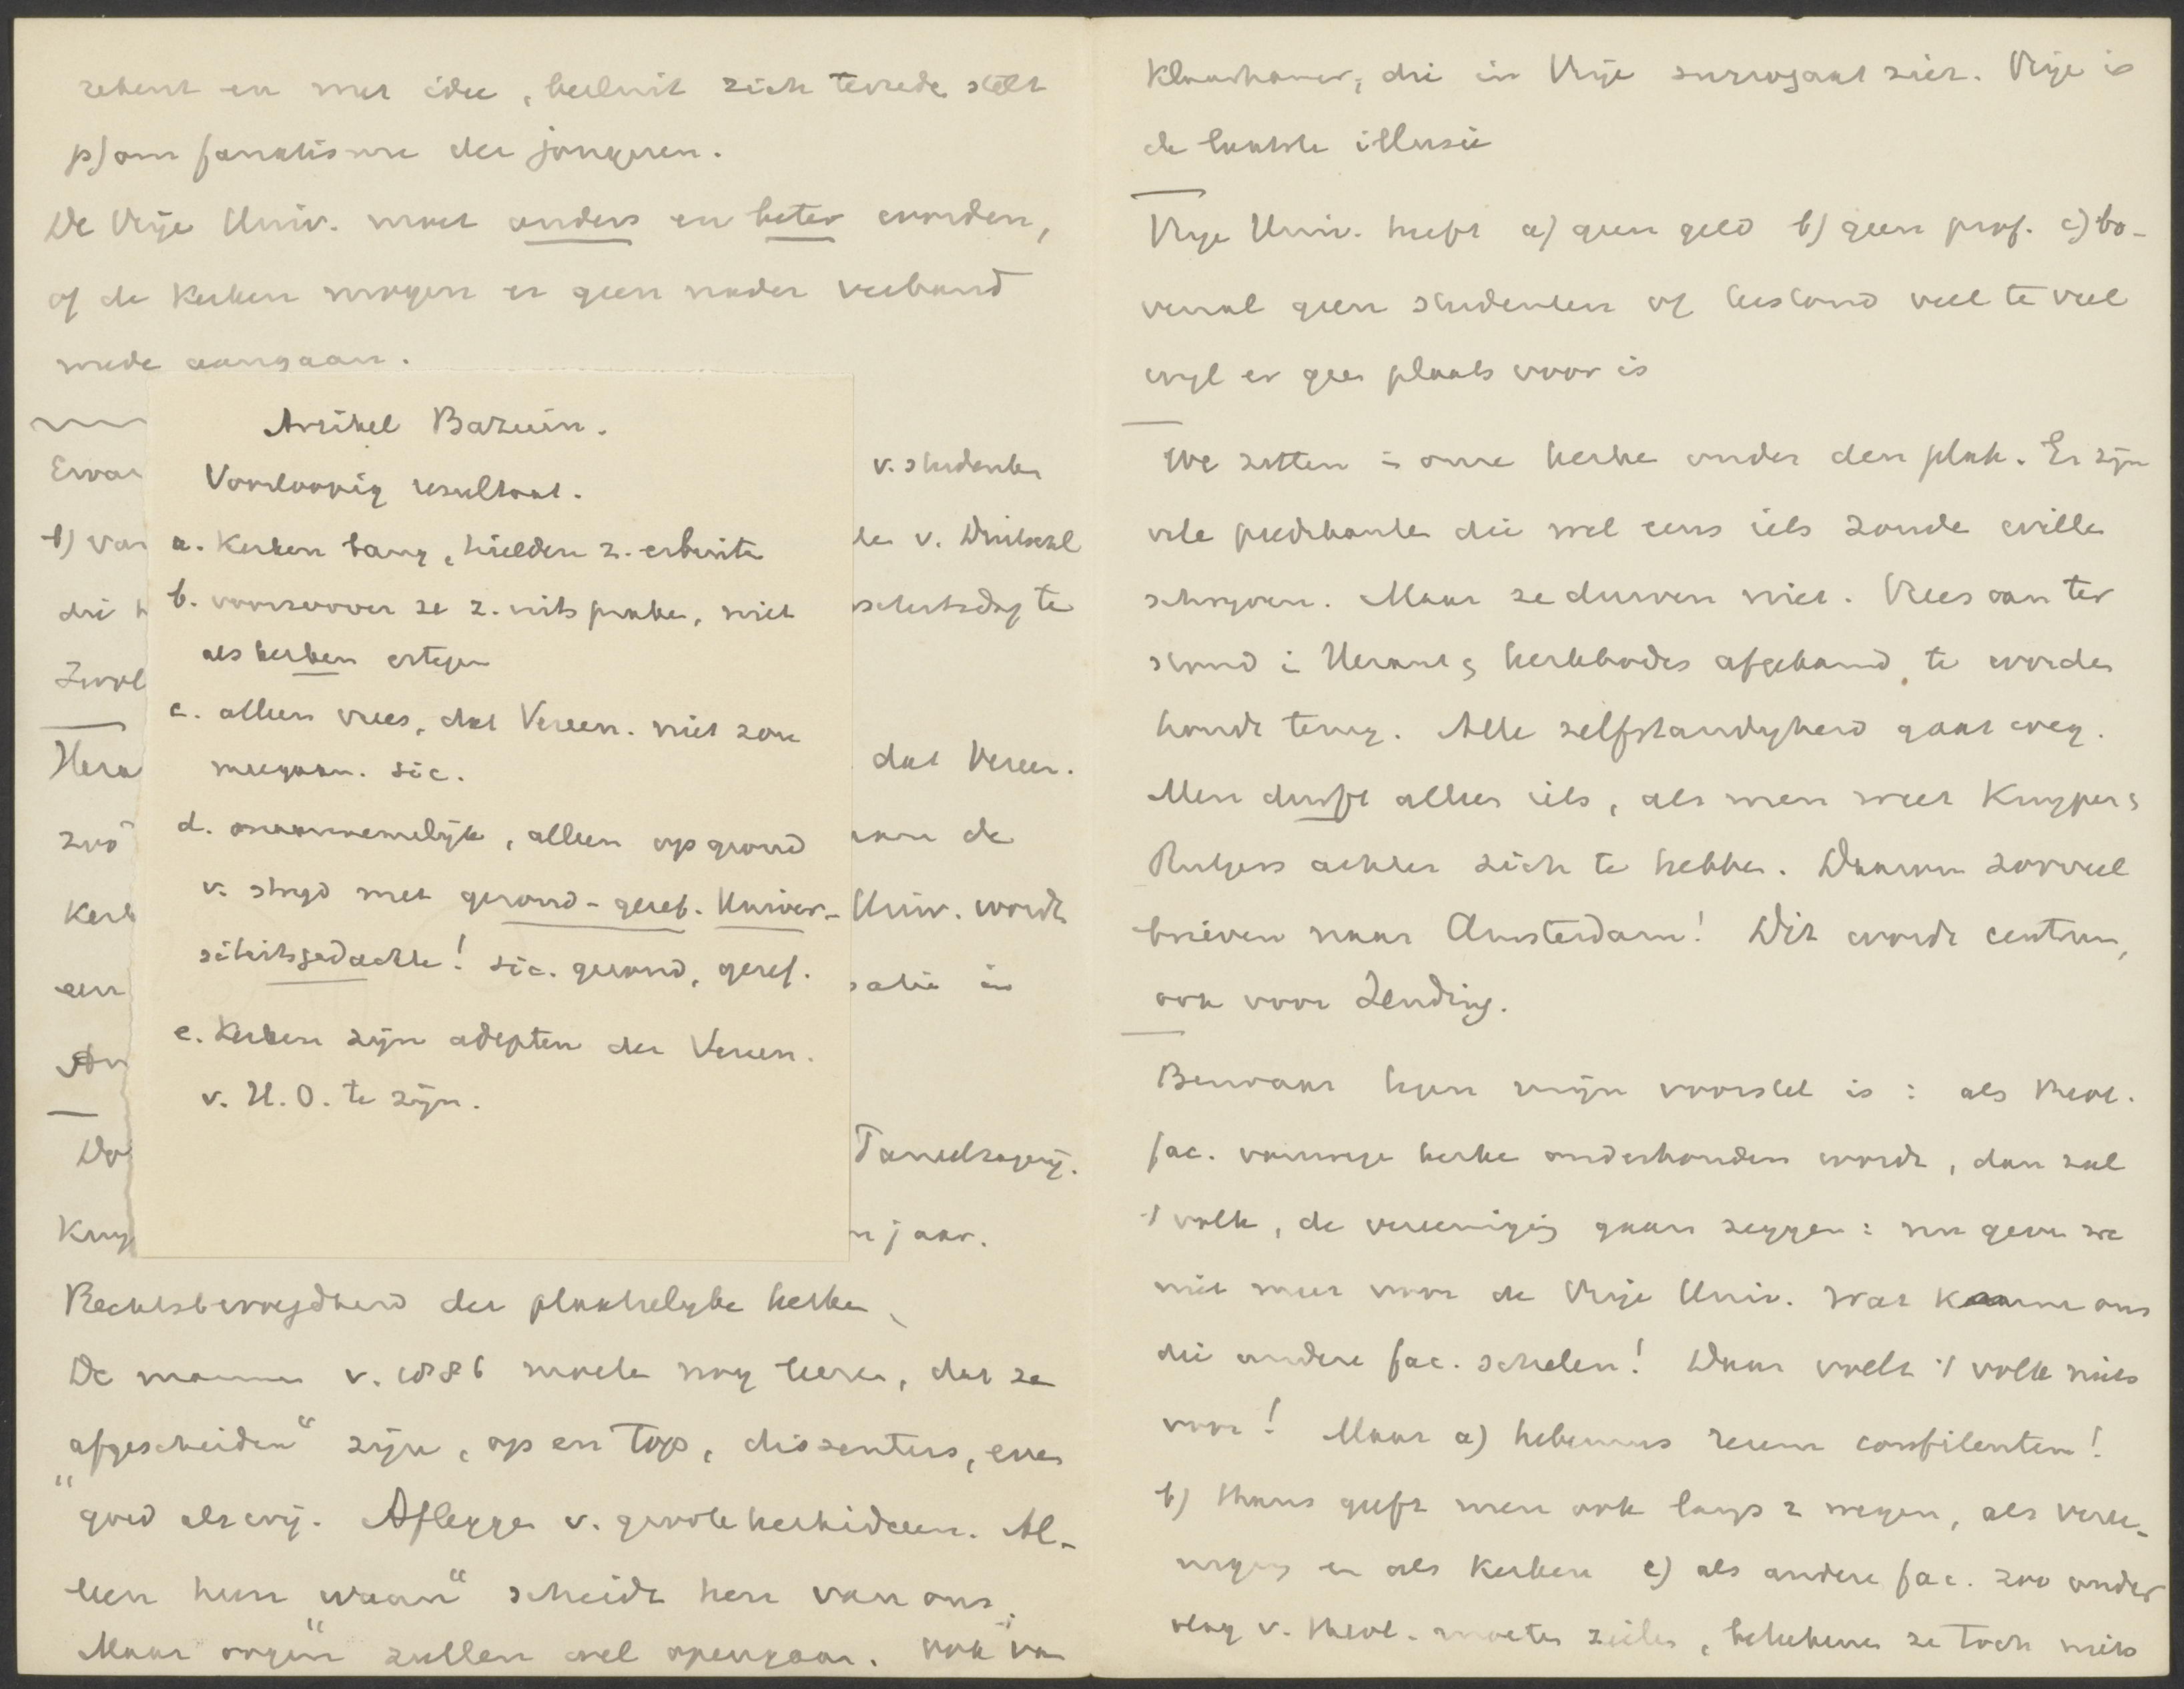 rekent en met idee, besluit zich tevrede stelt
p) om fanatisme der jongeren.
De Vrije Univ. moet anders en beter worden,
of de Kerken mogen er geen nader verband
mede aangaan.
Artikel Bazuin.
Voorloopig resultaat.
a. Kerken bang, hielden z. erbuite
b. voorzoover ze z. uitspraken, niet
als kerken ertegen
c. alleen vrees, dat Vereen. niet zou
meegaan. sic.
d. onaannemelijk, alleen op grond
v. strijd met gezond-geref. Univer-
siteitsgedachte! sic. gezond, geref.
e. Kerken zijn adepten der Vereen.
v. H. O. te zijn.
Ervar
v. studenten
b) van
v. Duitschl
die
te
Zwol
Hera
dat Vereen.
zoo
de
Kerk
Univ. wordt
een
in
An
Do
Kuy
n jaar.
Rechtsbevoegdheid der plaatselijke kerken
De mannen v. 1886 moeten nog leeren, dat ze
"afgescheiden" zijn, op en top, dissenters, even
goed als wij. Afleggen v. groote kerkideeen. Al-
leen hun "waan" scheidt hen van ons.
Maar oogen zullen wel opengaan. Ook van
die in Vrije surrogaat ziet. Vrije is
de laatste illusie
Vrije Univ. heeft a) geen geld b) geen prof. c) bo-
venal geen studenten of bestand veel te veel
wijl er geen plaats voor is
We zitten in onze kerke onder den plak. Er zijn
vele predikanten die wel eens iets zoude wille
schrijven. Maar ze durven niet. Vrees om ter
stond in Heraut & kerkbodes afgekamd te worden
houdt terug. Alle zelfstandigheid gaat weg.
Men durft alleen iets, als men weet Kuyper &
Rutgers achter zich te hebben. Daarom zooveel
brieven naar Amsterdam! Dit wordt centrum,
ook voor Zending.
Bezwaar tegen mijn voorstel is: als theol.
fac. vanwege kerke onderhouden wordt, dan zal
't volk, de vereeniging gaan zeggen: nu geven we
niet meer voor de Vrije Univ. Wat kunnen ons
die andere fac. schelen! Daar voelt 't volk niets
voor! Maar a) habemus reum confitentem!
b) thans geeft men ook langs 2 wegen, als veree-
niging en als Kerken c) als andere fac. zoo onder
vlag v. theol. moeten zeilen, beteekenen ze toch niets